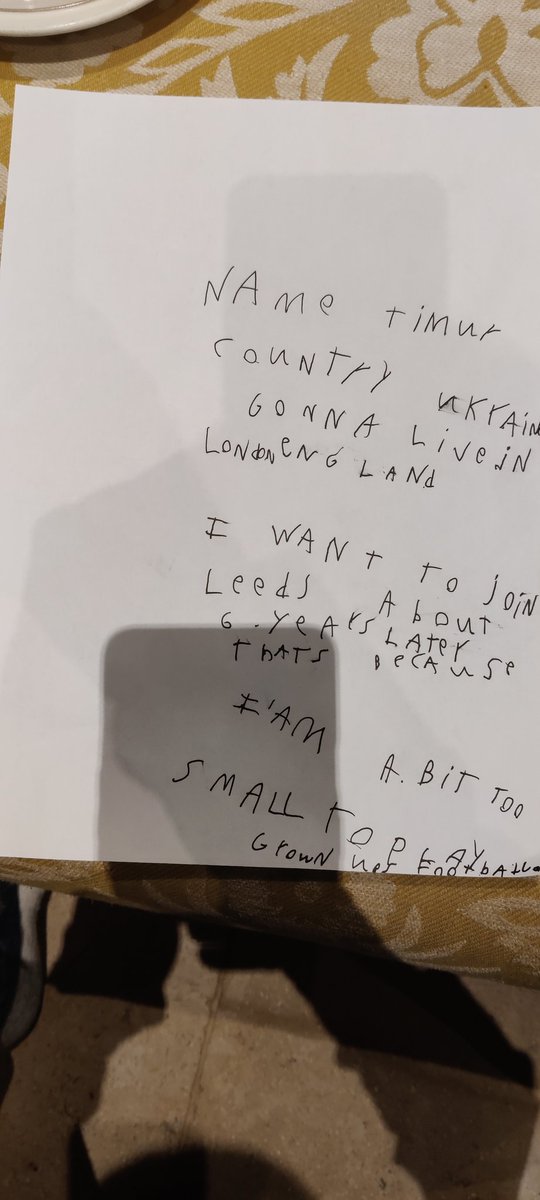 NAme timur
COUNTrY UKrAiN
GONNA LiveiN
LONDONeNGLANd
I WANt to JOiN
Leeds About
6.YeArs LAter
thAts BecAuse
I'AM
A.BiT TOO
SMALL TO PLAY
GrowN ups FootbALL